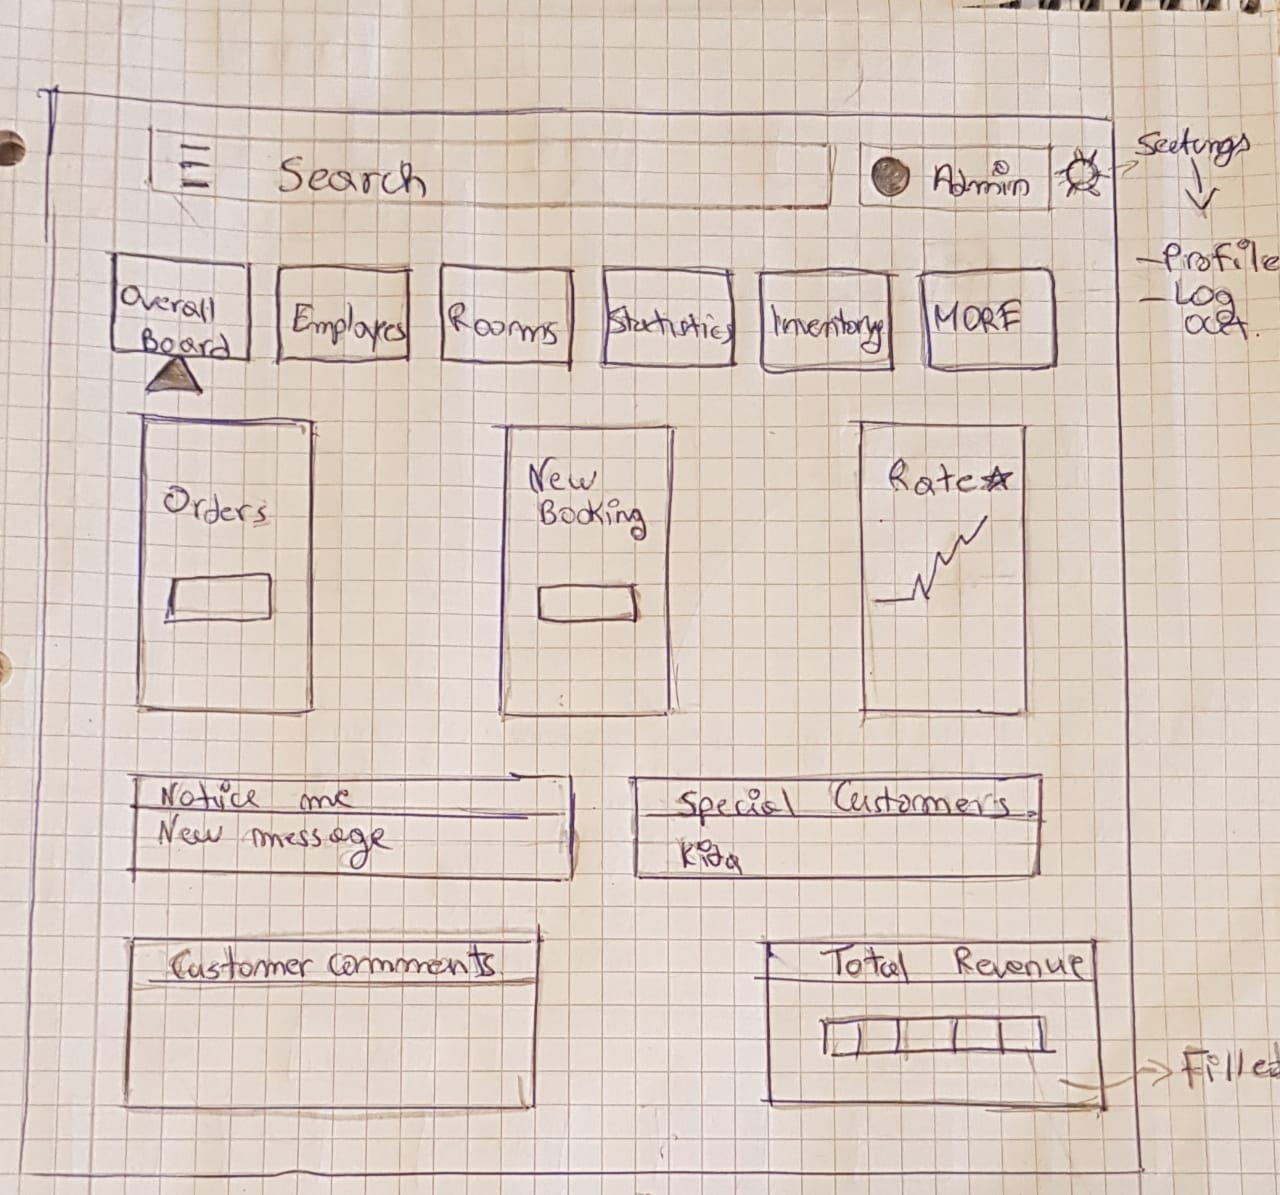 Search
Admin
Seetungs
Overall
Board
Employes
Rooms
Statistics
Inventory
MORE
-Profile
-Log
out.
Orders
New
Booking
Rate
Notice me
New message
Special Custormers
Customer comments
Total Revenue
Filled